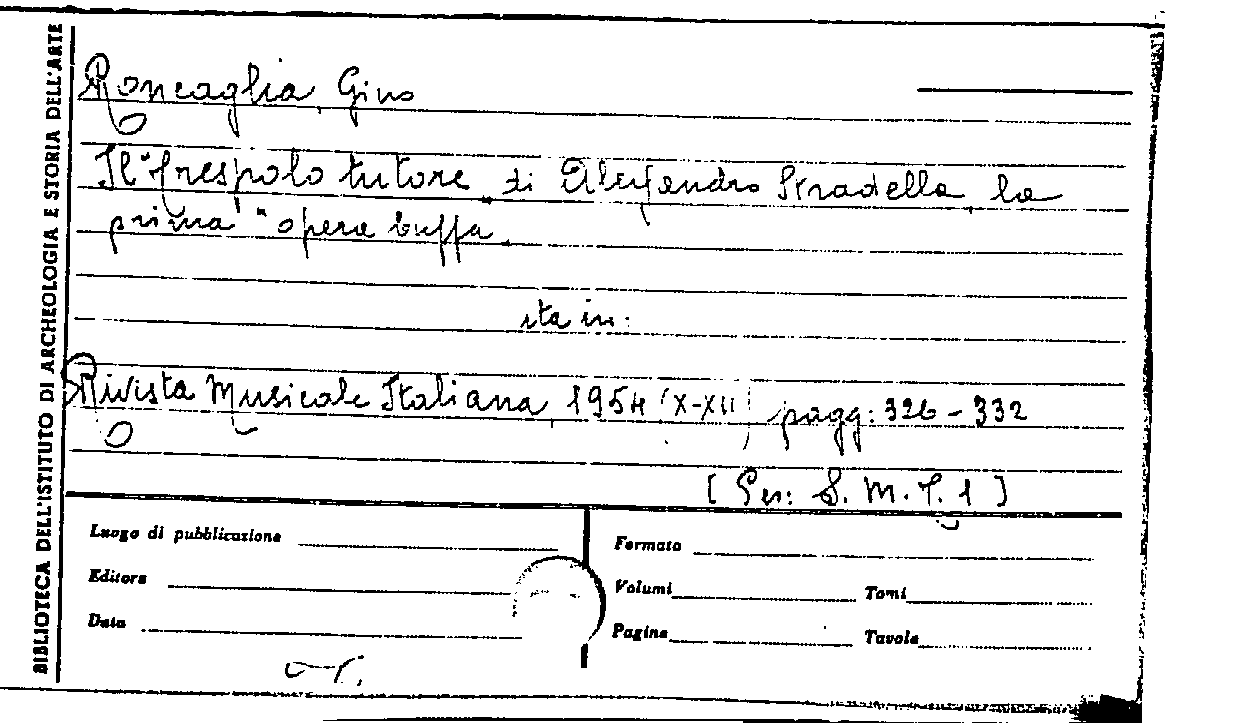 BIBLIOTECA DELL'ISTITUTO DI ARCHEOLOGIA E STORIA DELL'ARTE
Roncaglia, Gino
Il "Trespolo tutore" di Alessandro Stradella, la
prima "opera buffa".
sta in:
Rivista Musicale Italiana, 1954 (X-XII) pagg: 326-332
[Per: S. M. 7. 1]
Luogo di pubblicazione
Editore
Data
Formato
Volumi Tomi
Pagine Tavole